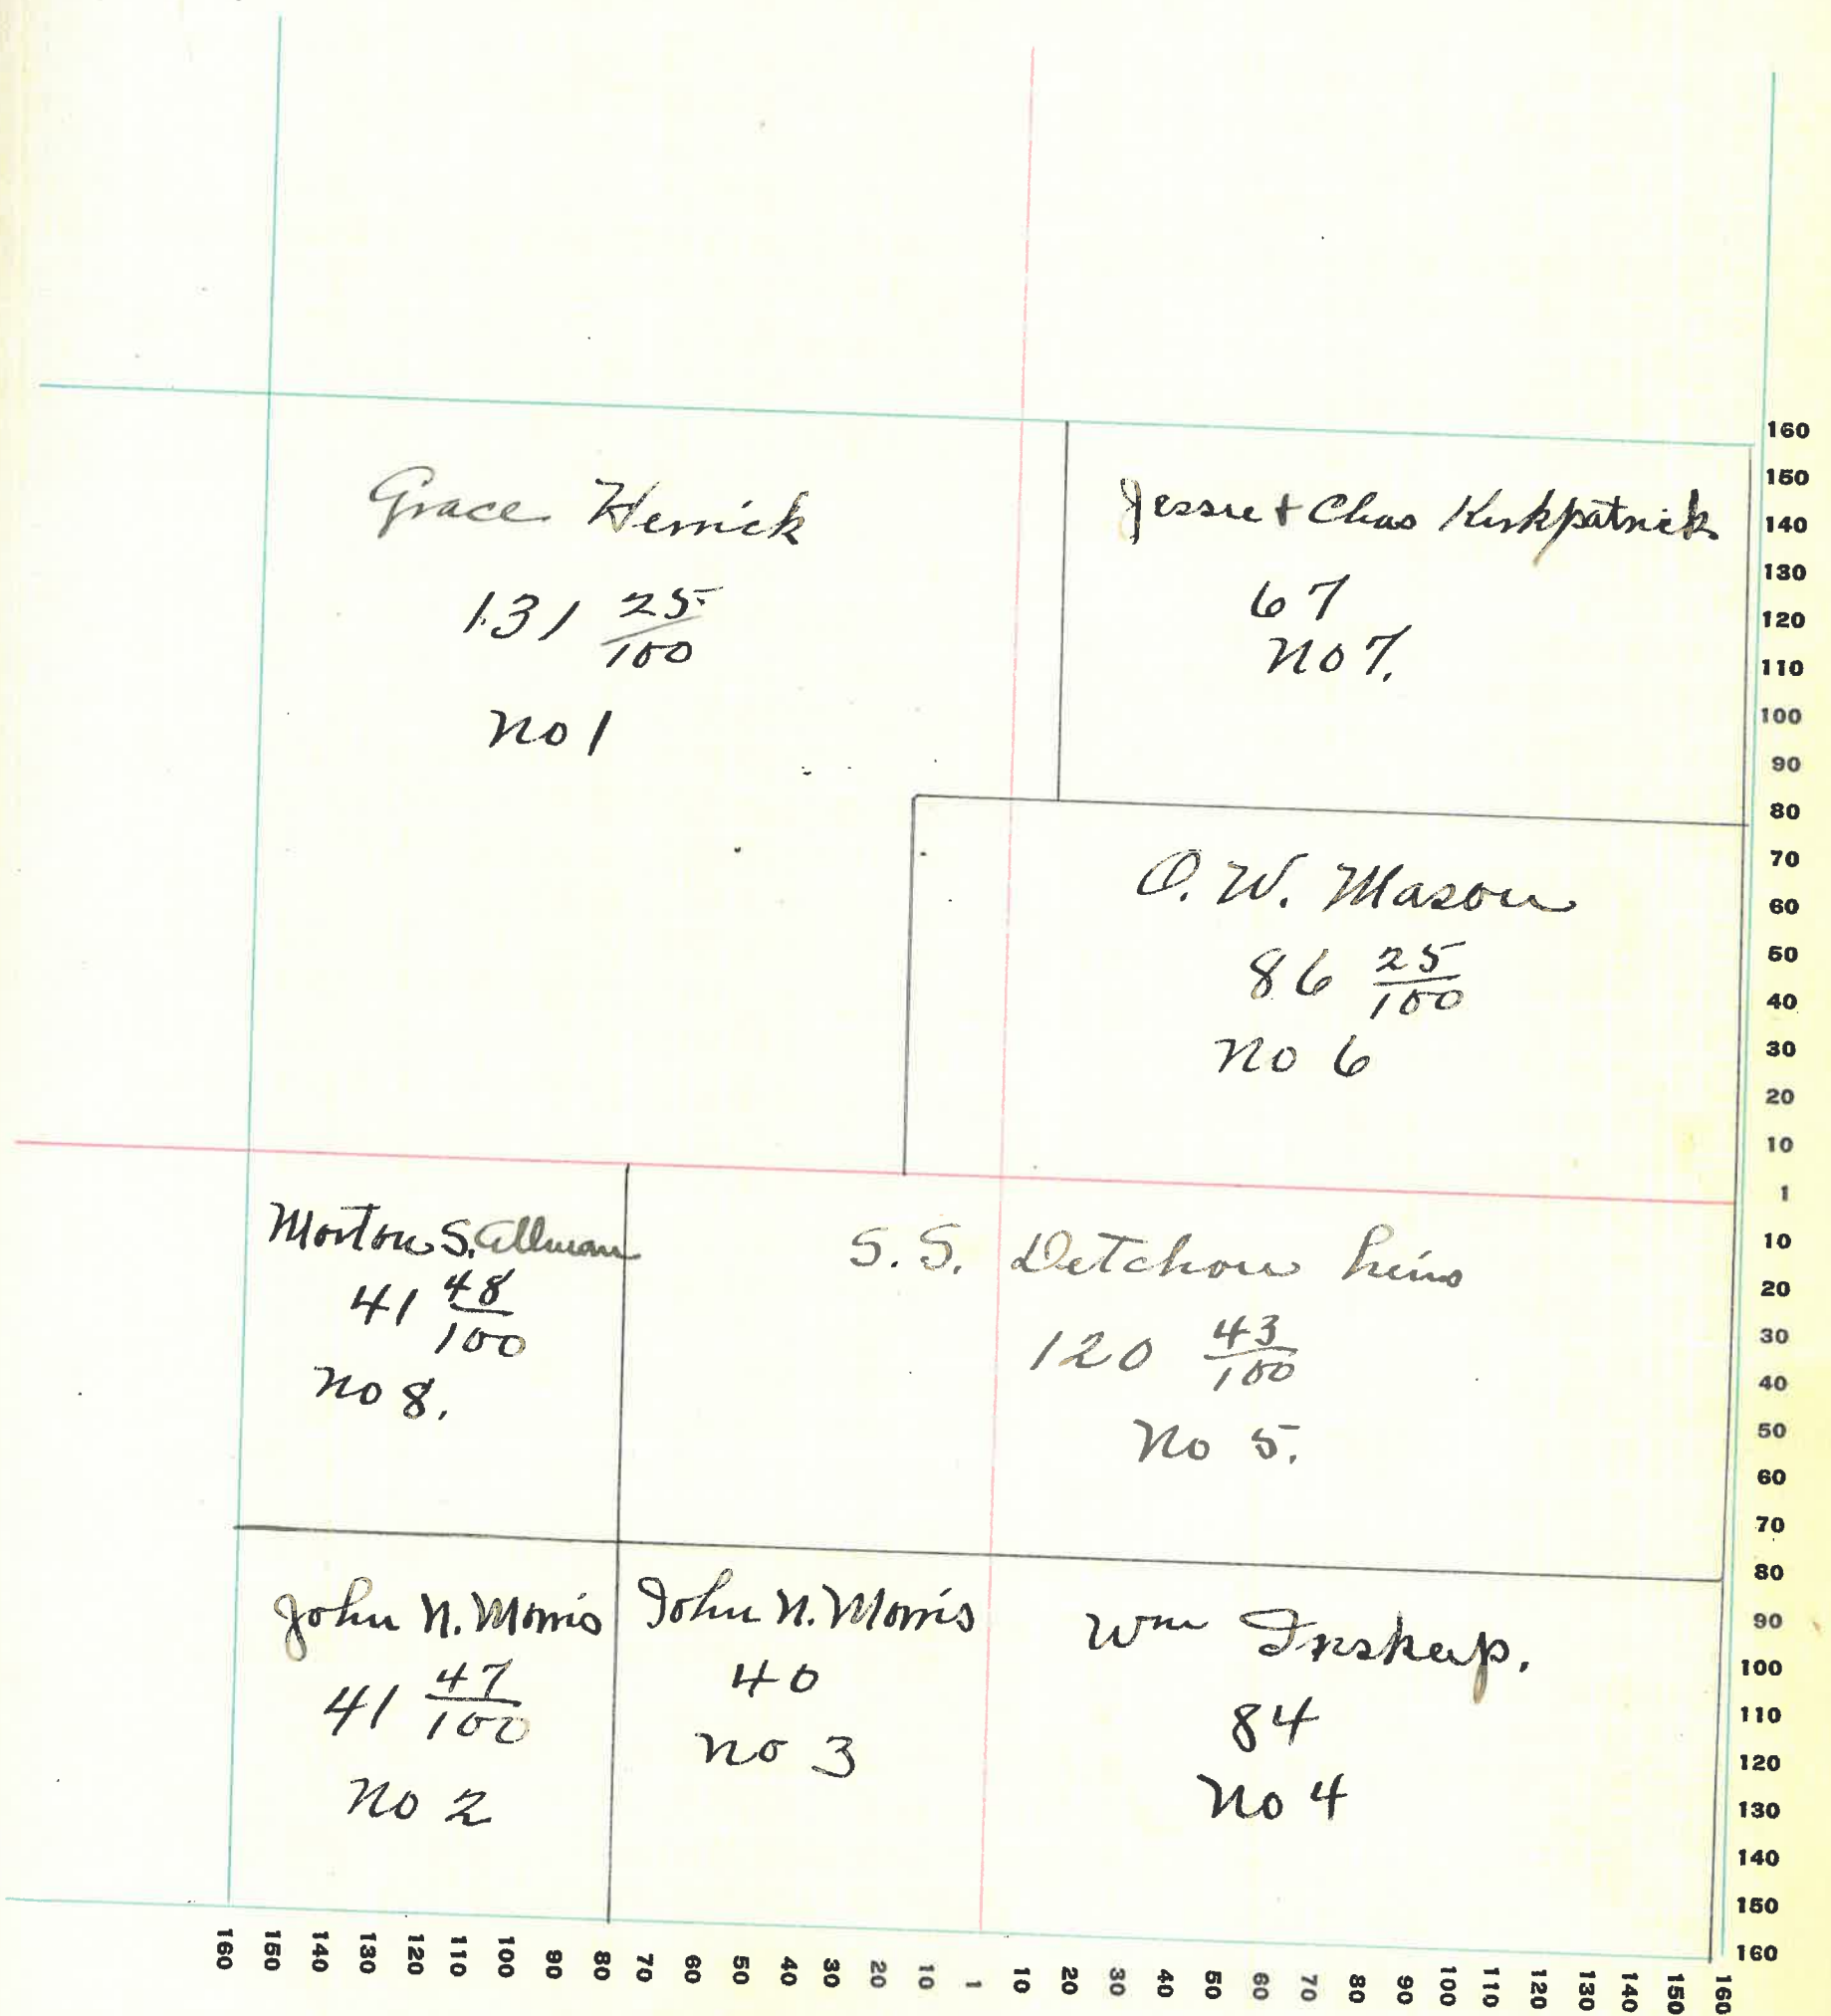 Grace Herrick
131 25/100
no 1
Jessie + Chas Kirkpatrick
67
no 7.
O. W. Mason
86 25/100
no 6
Morton S. Allman
41 48/100
no 8.
S. S. Detchon heirs
120 43/100
No 5.
John N. Morris
41 47/100
no 2
John N. Morris
40
no 3
Wm Inskeep.
84
No 4
160
150
140
130
120
110
100
90
80
70
60
50
40
30
20
10
1
10
20
30
40
50
60
70
80
90
100
110
120
130
140
150
160
160 150 140 130 120 110 100 90 80 70 60 50 40 30 20 10 1 10 20 30 40 50 60 70 80 90 100 110 120 130 140 150 160